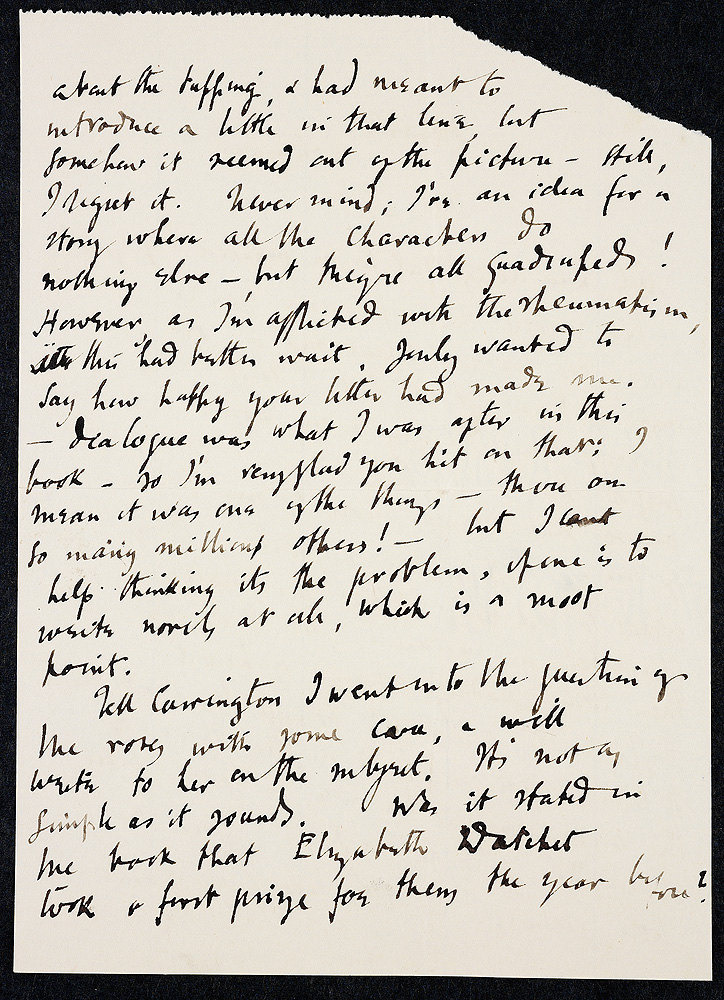 about the tupping, & had meant to
introduce a little in that line, but
somehow it seemed out of the picture - still,
I regret it. Never mind; I've an idea for a
story where all the characters do
nothing else - but they're all quadrupeds!
However, as I'm afflicted with the rheumatism,
this had better wait. I only wanted to
say how happy your letter had made me.
- dialogue was what I was after in this
book - so I'm very glad you hit on that; I
mean it was one of the things - there are
so many millions others! - but I cant
help thinking its the problem, if one is to
write novels at all, which is a moot
point.
Tell Carrington I went into the question of
the roses with some care, & will
write to her on the subject. Its not as
simple as it sounds. Was it stated in
the book that Elizabeth Datchet
took a first prize for them the year before?